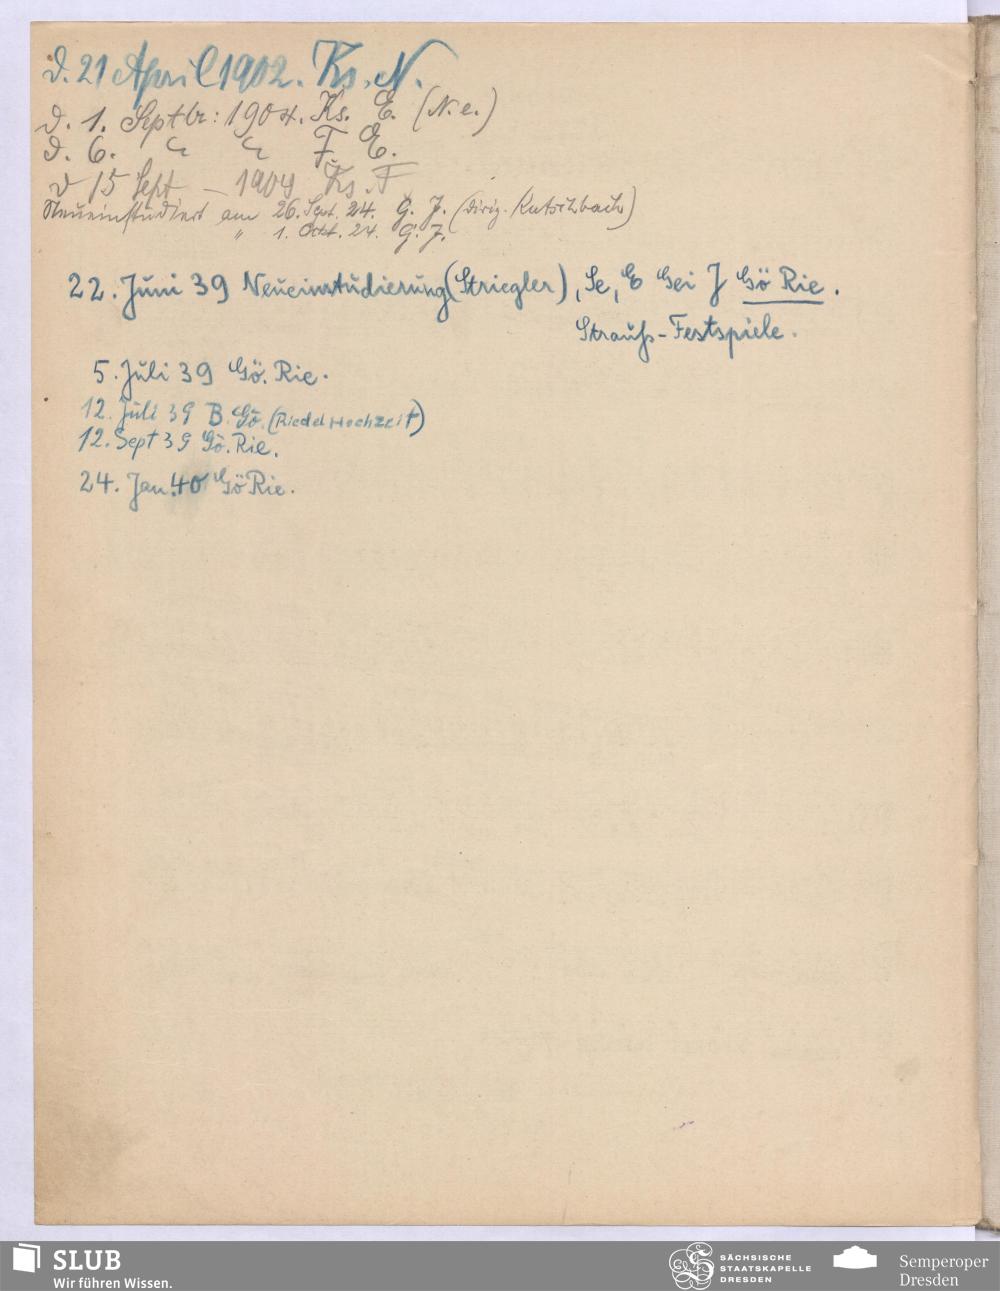 d. 21 April 1902. Ks. N.
d. 1. Septbr: 1904. Ks. E. (N. e.)
d. 6. " " F. E.
d 15 Sept – 1904 Ks. F
Neueinstudiert am 26. Sept. 24. G. J. (Dirig. Kutschbach)
" 1. Okt. 24. G. J.
22. Juni 39 Neueinstudierung (Striegler), Se, E Gei J Gö Rie.
Strauß-Festspiele.
5. Juli 39 Gö. Rie.
12. Juli 39 B. Gö. (Riedel Hochzeit)
12. Sept 39 Gö. Rie.
24. Jan. 40 Gö Rie.
SLUB
Wir führen Wissen.
SÄCHSISCHE
STAATSKAPELLE
DRESDEN
Semperoper
Dresden